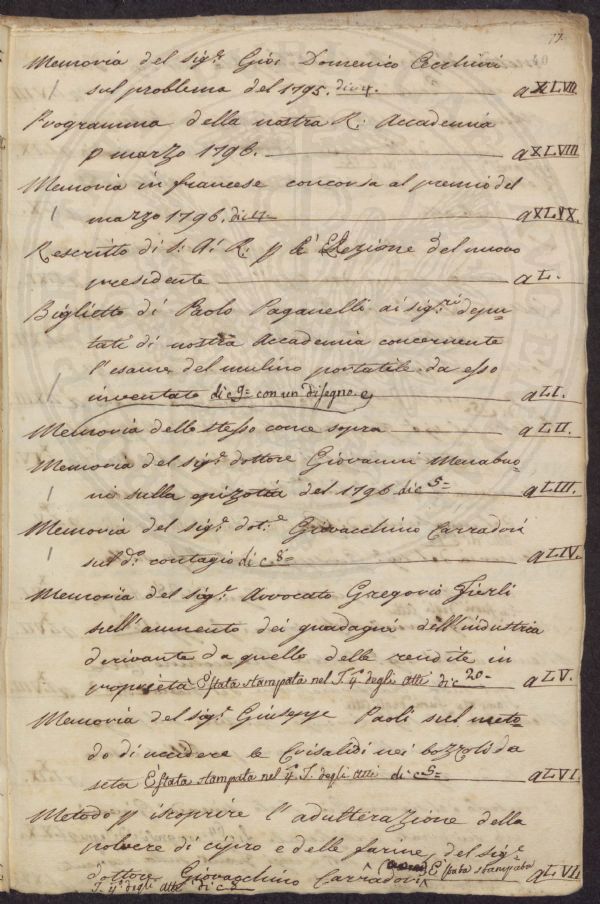 77.
40
Memoria del sig.e Gio: Domenico Cecchini
sul problema del 1795. di c 4. a XLVII
Programma della nostra R: Accademia
p marzo 1796. a XLVIII
Memoria in francese concorsa al premio del
marzo 1796. di c 4= a XLIX.
Rescritto di S: A: R: p l'Elezione del nuovo
presidente a L.
Biglietto di Paolo Paganelli ai sig.ri depu-
tati di nostra Accademia concernente
l'esame del mulino portatile da esso
inventato di c 9= con un disegno e a LI.
Memoria dello stesso come sopra a LII.
Memoria del sig.e dottore Giovanni Menabuo-
ni sulla epizotia del 1796 di c 5= a LIII.
Memoria del sig.e dot.e Giovacchino Carradori
sul d.o contagio di c 8= a LIV.
Memoria del sig.e Avvocato Gregorio Fierli
sull'aumento dei guadagni dell'industria
derivante da quello delle rendite in
proprietà È stata stampata nel T. 4.o degli atti di c 20= a LV.
Memoria del sig.e Giuseppe Paoli sul meto-
do di uccidere le Crisalidi nei bozzoli da
seta È stata stampata nel 4.o T. degli atti di c 5= a LVI.
Metodo p iscoprire l'adulterazione della
polvere di cipro e delle farine del sig.e
dottore Giovacchino Carradori È stata stampata a LVII
T. 4.o degli atti di c